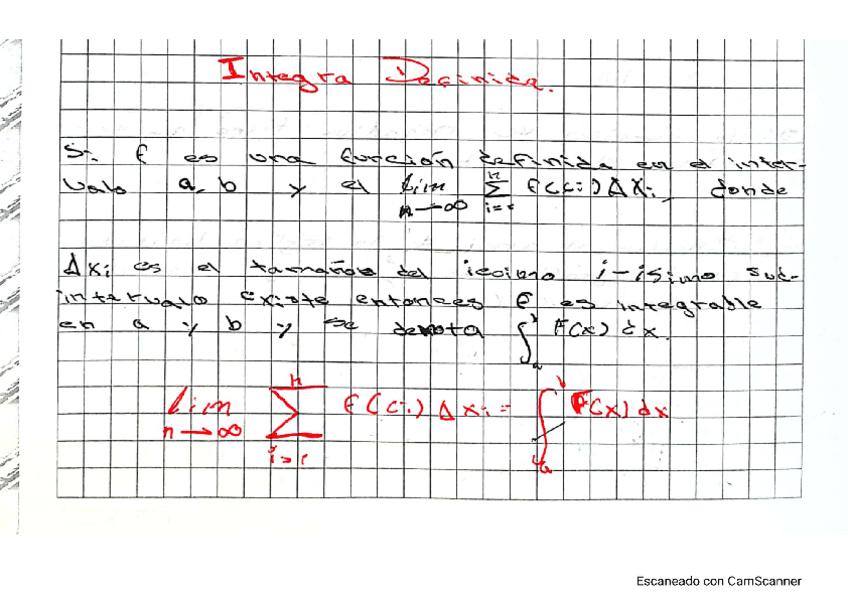 Integra Definida.
Si f es una función definida en el inter-
valo a, b y el lim n→∞ n Σ i=1 f(ci)Δxi, donde
Δxi es el tamaño del iecimo i-isimo sub-
intervalo existe entonces f es integrable
en a y b y se denota ∫ b a F(x) dx.
lim n→∞ n Σ i=1 f(ci) Δxi = ∫ b a F(x) dx
Escaneado con CamScanner